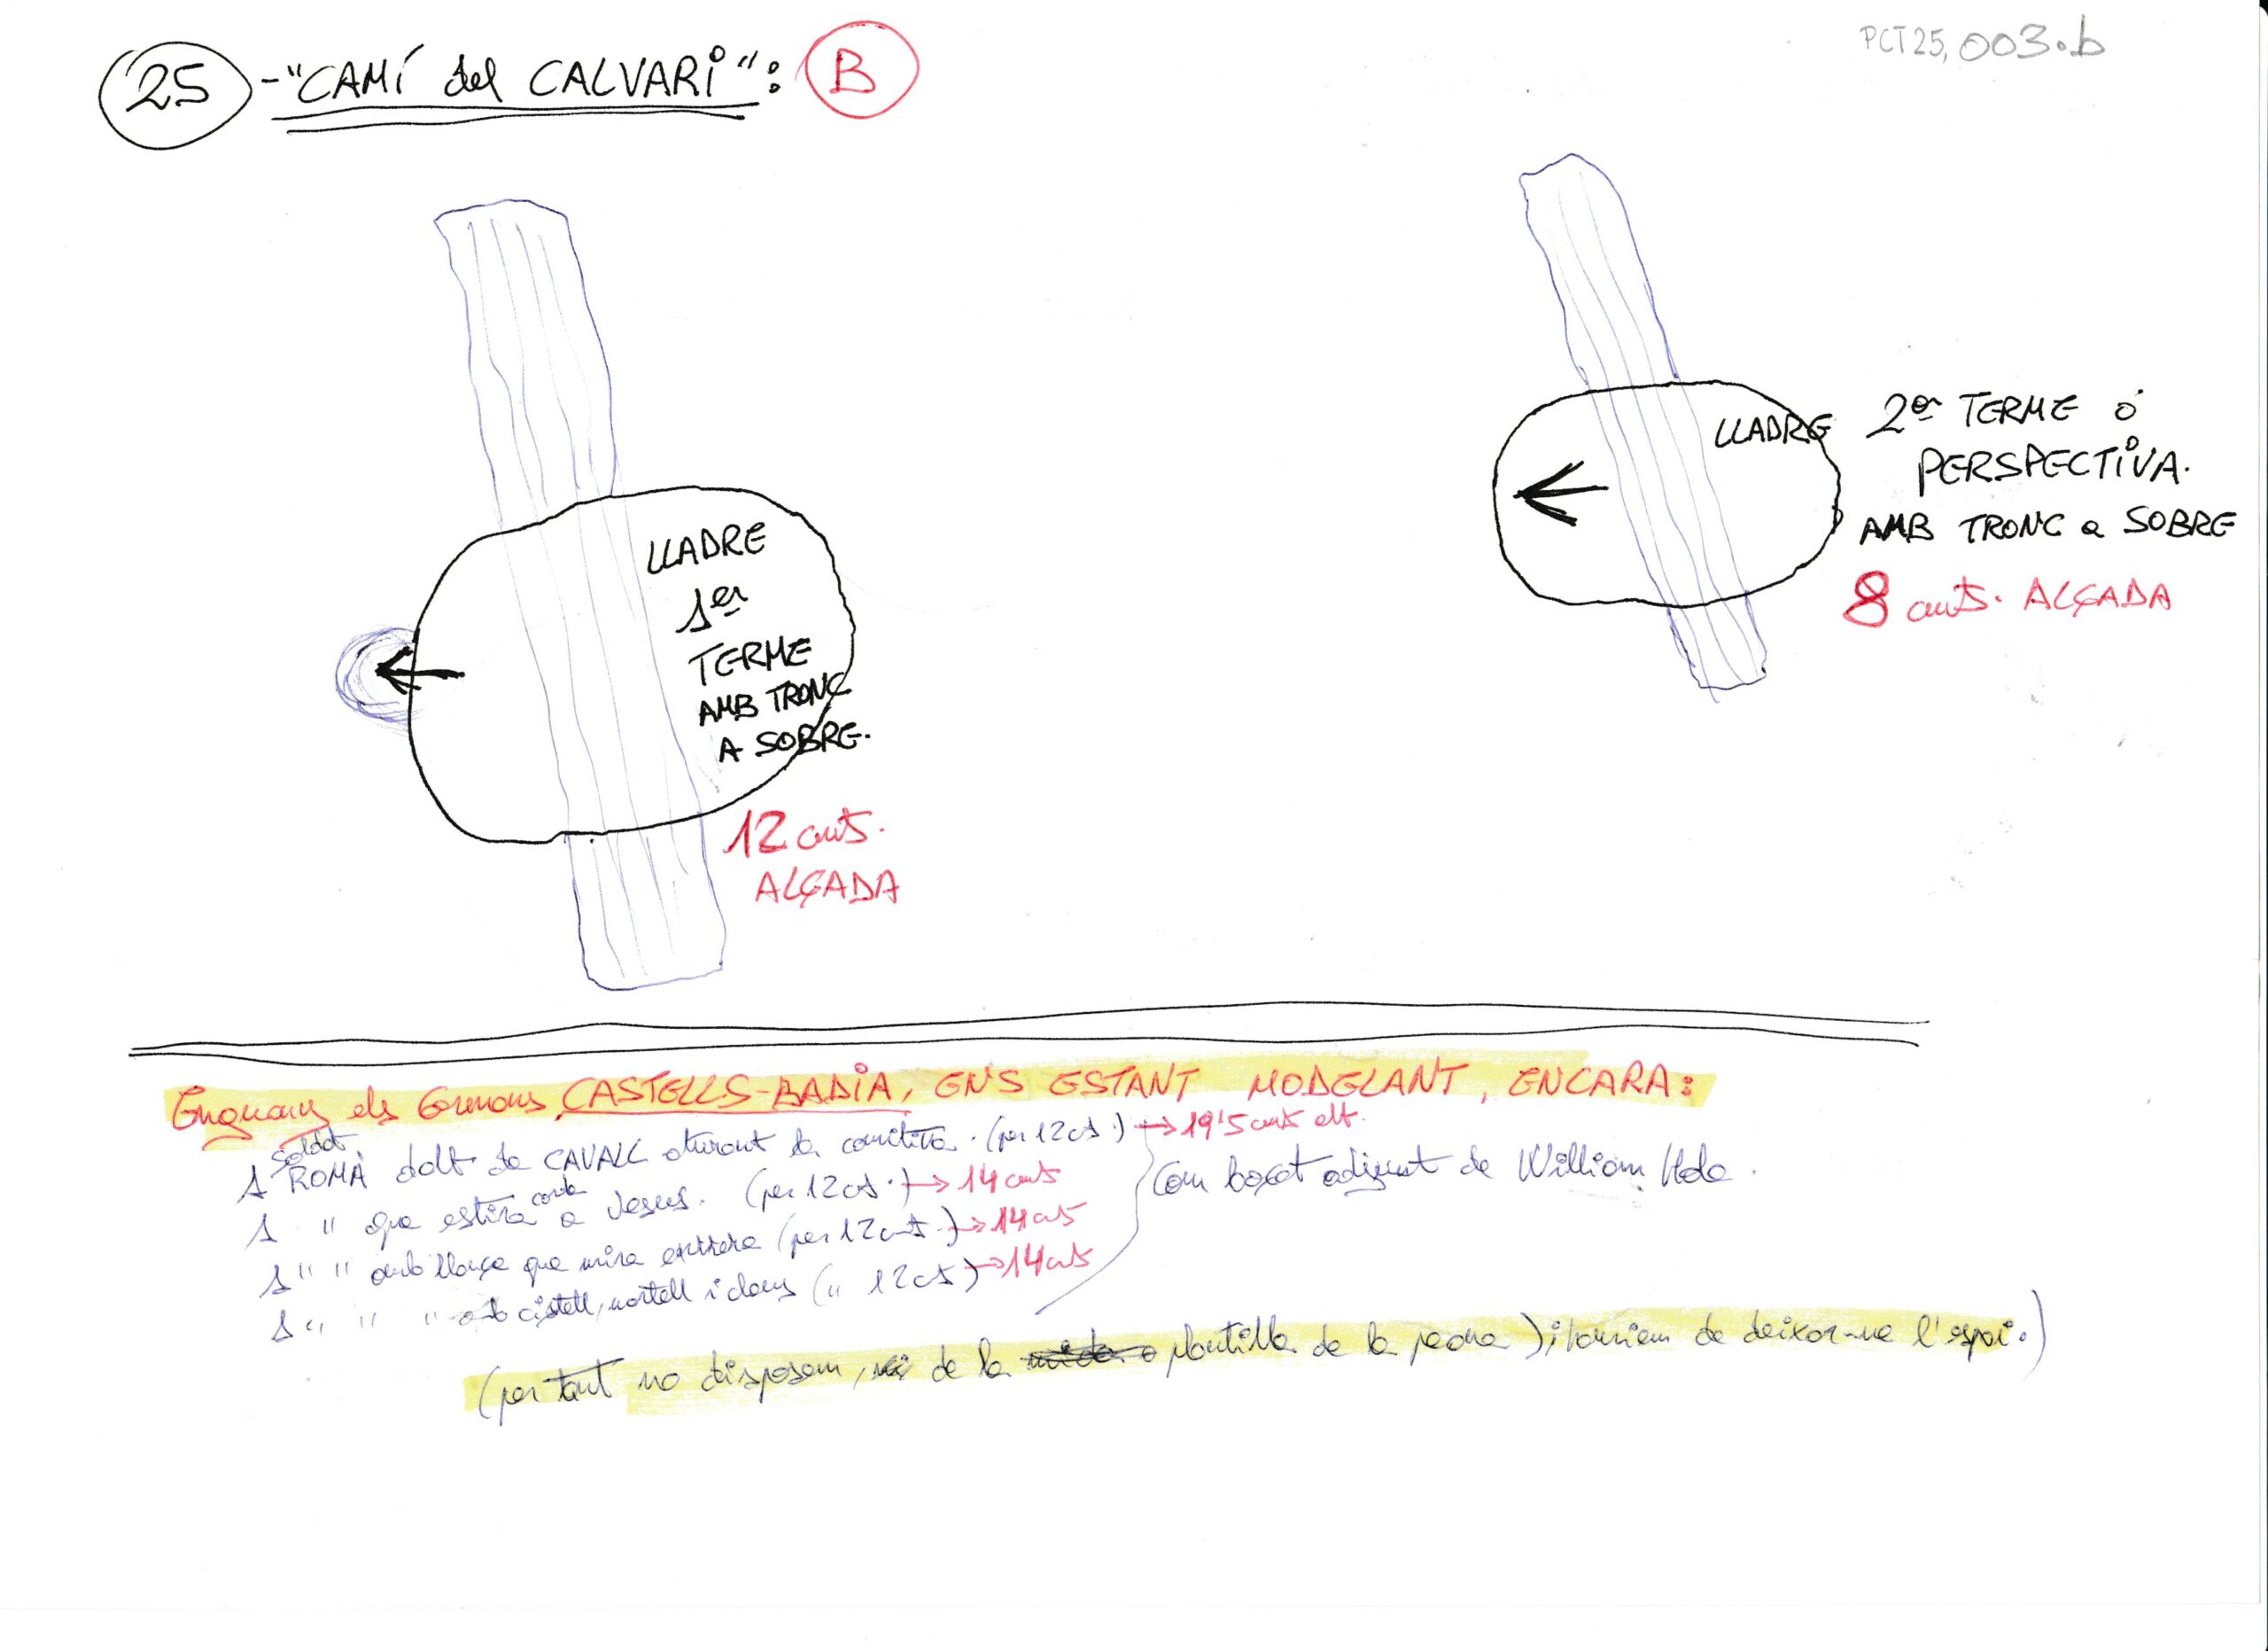 PCT25,003.b
25 - "CAMÍ del CALVARI": B
LLADRE
1er
TERME
AMB TRONC
A SOBRE.
12 cmts.
ALÇADA
LLADRE 2on TERME ó
PERSPECTIVA.
AMB TRONC a SOBRE
8 cmts. ALÇADA
Enguany els Germans CASTELLS-BADIA, ENS ESTANT MODELANT, ENCARA:
1 soldat ROMÀ dalt de CAVALL aturant la comitiva. (per 12 cts.) → 19'5 cmts alt.
1 " que estira corda a Jesus. (per 12 cts.) → 14 cmts
Com boçet adijunt de William Hole.
1 " " amb llança que mira enrrera (per 12 cmts.) → 14 cts
1 " " " amb cistell, martell i claus (" 12 cts) → 14 cts
(per tant no disposem, de la plantilla de la peana); hauriem de deixar-ne l'espai.)